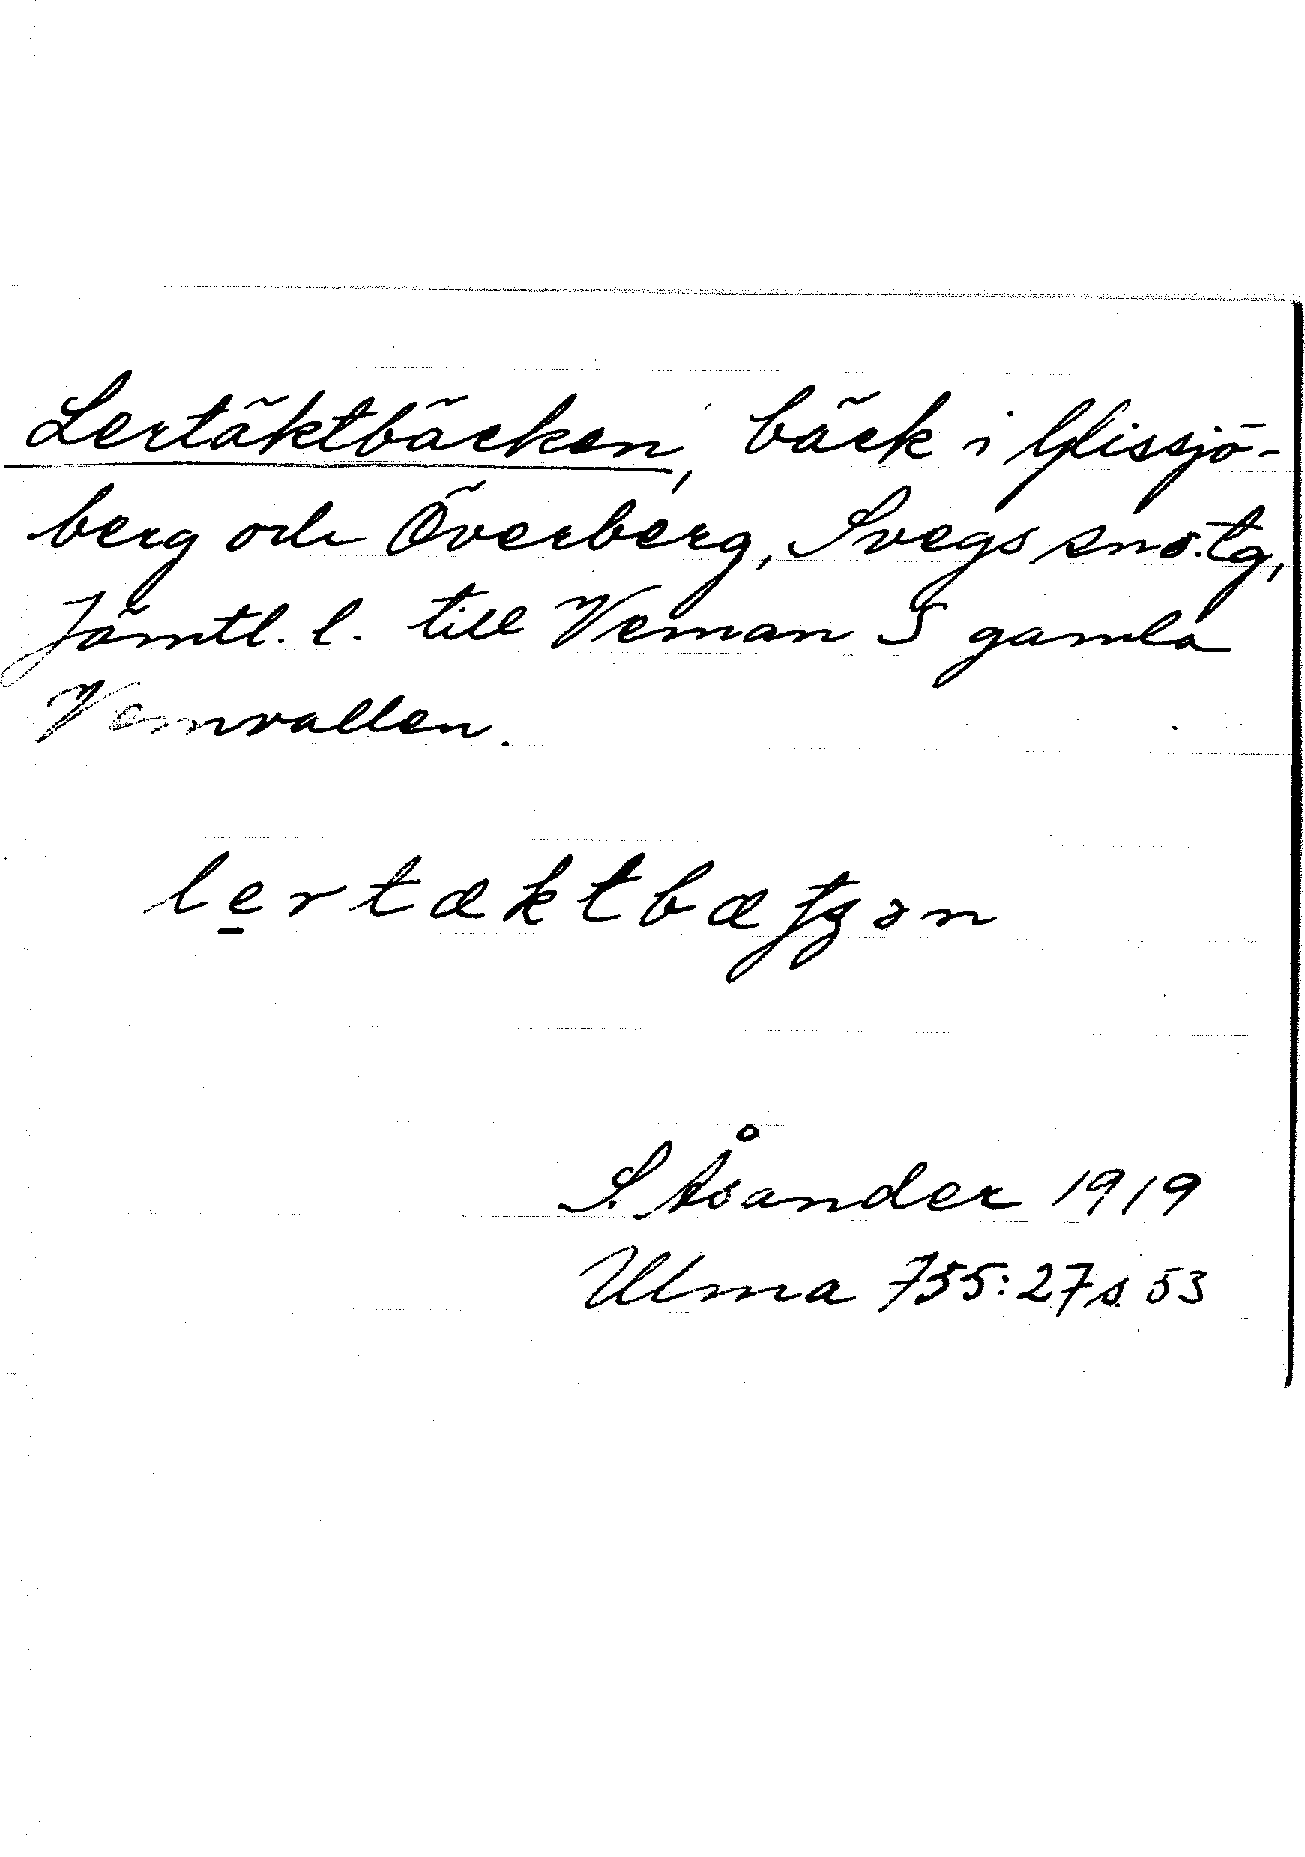 Lertäktbäcken, bäck i Nissjö-
berg och Överberg, Svegs snö.tg,
Jämtl. l. till Veman S gamla
Vemvallen.
lertæktbæ ən
S. Åsander 1919
Ulma 755:27 s. 53